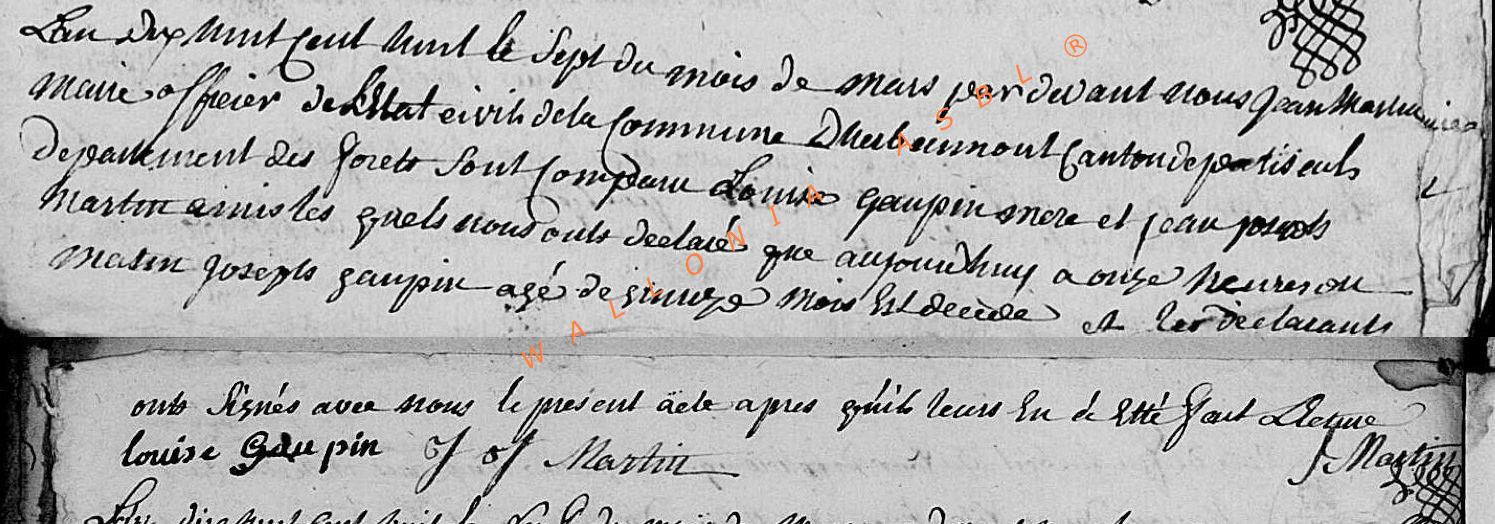 L'an dix huit cent huit le sept du mois de mars par devant nous Jean Martin
maire officier de L'Etat civil de la commune D'herbeumont canton de
Departement des forets sont comparu Louise gaupin mere et jean
Martin amis les quels nous onts declarés que aujourd'huy a onze heures du
matin Joseph gaupin agé de quinze mois Est décédé et les déclarants
onts signés avec nous le présent acte apres qu'ils leurs En a Etté fait Lecture
louise Gaupin J J Martin J Martin
WALLONIA ASBL ®